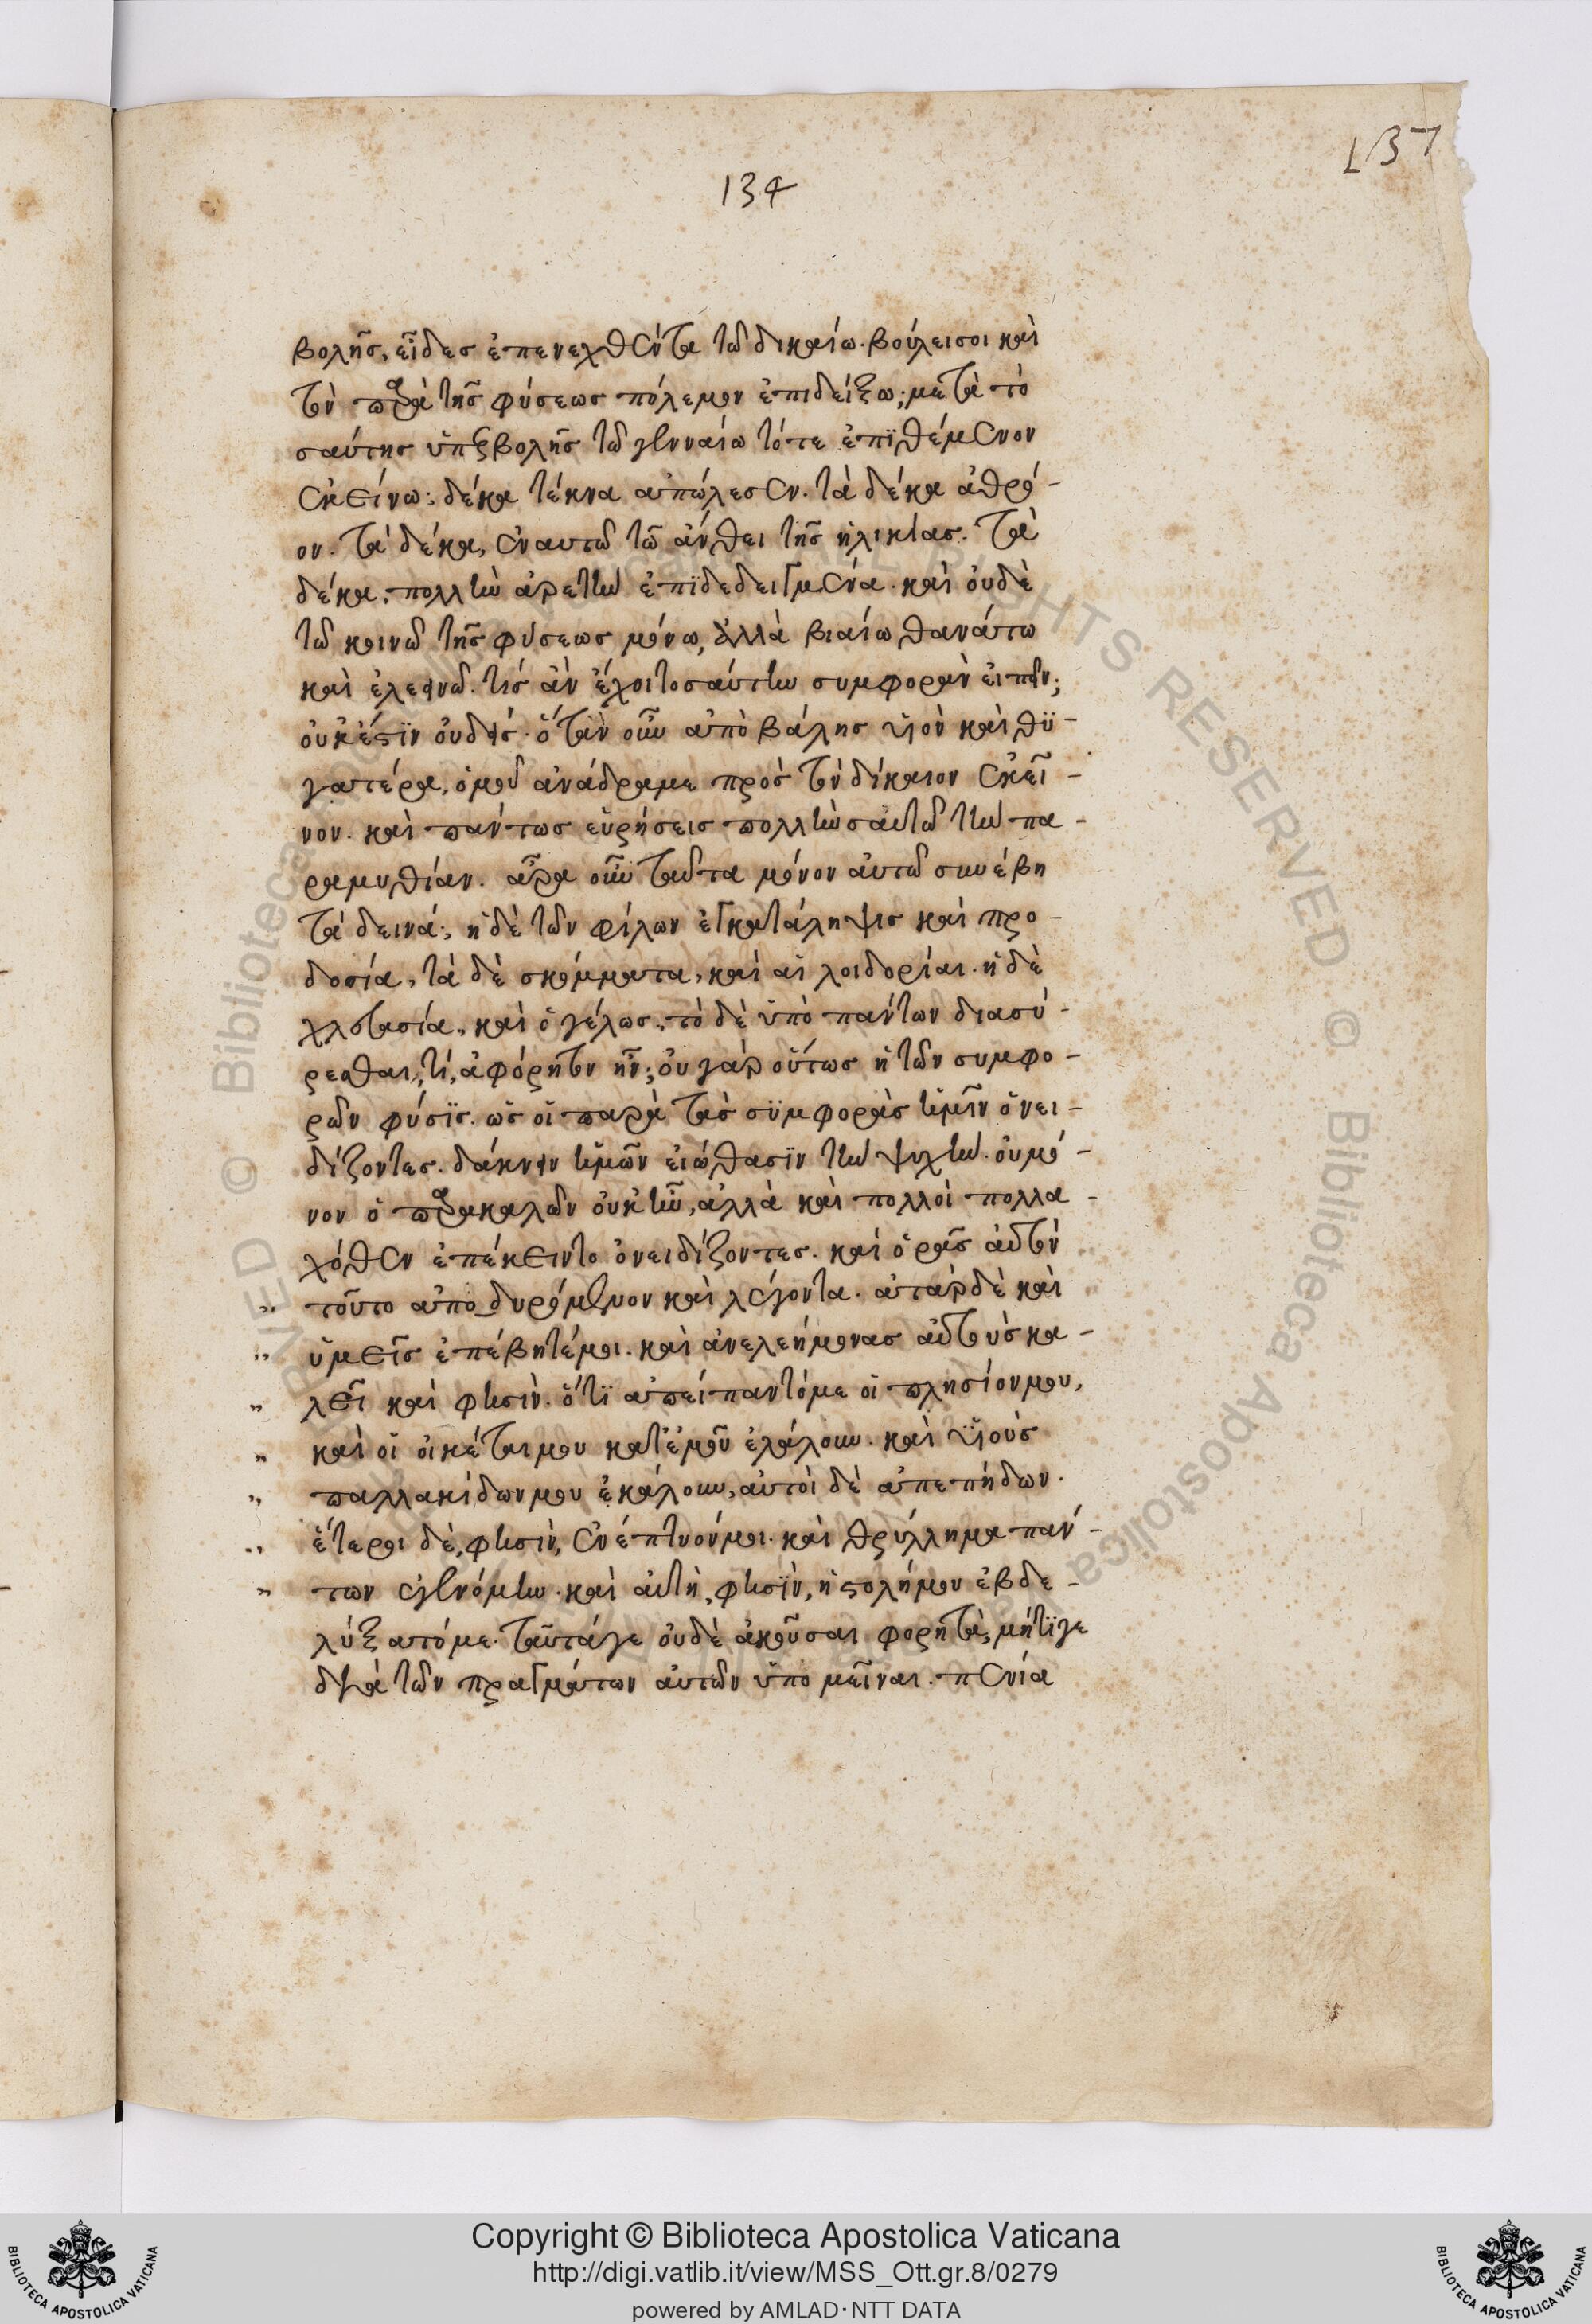 137
134
βολῆς, εἶδες ἐπενεχθέντα τῶ δικαίω. βούλει σοι καὶ
τὸν παρὰ τῆς φύσεως πόλεμον ἐπιδείξω; μετὰ το
σαύτης ὑπερβολῆς τῶ γενναίω τότε ἐπιθέμενον
ἐκείνω; δέκα τέκνα ἀπώλεσεν. τὰ δέκα ἀθρό-
ον. τὰ δέκα, ἐν αυτῶ τῶ ἄνθει τῆς ἡλικίας. τὰ
δέκα, πολλὴν ἀρετὴν ἐπϊδεδειγμένα. καὶ οὐδὲ
τῶ κοινῶ τῆς φύσεως μόνω, ἀλλὰ βιαίω θανάτω
καὶ ἐλεεινῶ. τίς ἂν ἔχοι τοσαύτην συμφορὰν εἰπεῖν;
οὐκ ἔστϊν οὐδείς. ὅταν οὖν ἀποβάλης υἱὸν καὶ θϋ-
γατέρα, ὁμοῦ ἀνάδραμε πρὸς τὸν δίκαιον ἐκεῖ-
νον. καὶ πάντως εὑρήσεις πολλὴν σαυτῶ τὴν πα-
ραμυθίαν. ἆρα οὖν ταῦτα μόνον αὐτῶ συνέβη
τὰ δεινά; ἡ δὲ τῶν φίλων ἐγκατάληψις καὶ προ-
δοσία, τὰ δὲ σκόμματα, καὶ αἱ λοιδορίαι. ἡ δὲ
χλευασία, καὶ ὁ γέλως, τὸ δὲ ὑπὸ πάντων διασύ-
ρεσθαι, τί, ἀφόρητον ἦν; οὐ γὰρ οὕτως ἡ τῶν συμφο-
ρῶν φύσϊς. ὡς οἱ παρὰ τὰς σϋμφορὰς ἡμῖν ὀνει-
δίζοντες. δάκνειν ἡμῶν εἰώθασϊν τὴν ψυχήν. οὐ μό-
νον ὁ παρακαλῶν οὐκ ἦν, ἀλλὰ καὶ πολλοὶ πολλα-
χόθεν ἐπέκειντο ὀνειδίζοντες. καὶ ὁρᾶς αὐτὸν
" τοῦτο ἀποδυρόμενον καὶ λέγοντα. ἀτὰρ δὲ καὶ
" ὑμεῖς ἐπέβητέ μοι. καὶ ἀνελεήμονας αὐτοὺς κα-
" λεῖ καὶ φησὶν. ὅτϊ ἀπείπαντό με οἱ πλησίον μου,
" καὶ οἱ οἰκέται μου κατ' ἐμοῦ ἐλάλουν. καὶ υἱοὺς
" παλλακίδων μου ἐκάλουν, αὐτοὶ δὲ ἀπεπήδων.
" ἕτεροι δὲ, φησὶν, ἐνέπτυόν μοι. καὶ θρύλλημα πάν-
" των ἐγενόμην. καὶ αὐτὴ, φησϊν, ἡ στολή μου ἐβδε-
λύξατό με. ταῦτά γε οὐδὲ ἀκοῦσαι φορητὰ, μήτϊγε
διὰ τῶν πραγμάτων αὐτῶν ὑπομεῖναι. πενία
Copyright © Biblioteca Apostolica Vaticana
http://digi.vatlib.it/view/MSS_Ott.gr.8/0279
powered by AMLAD·NTT DATA